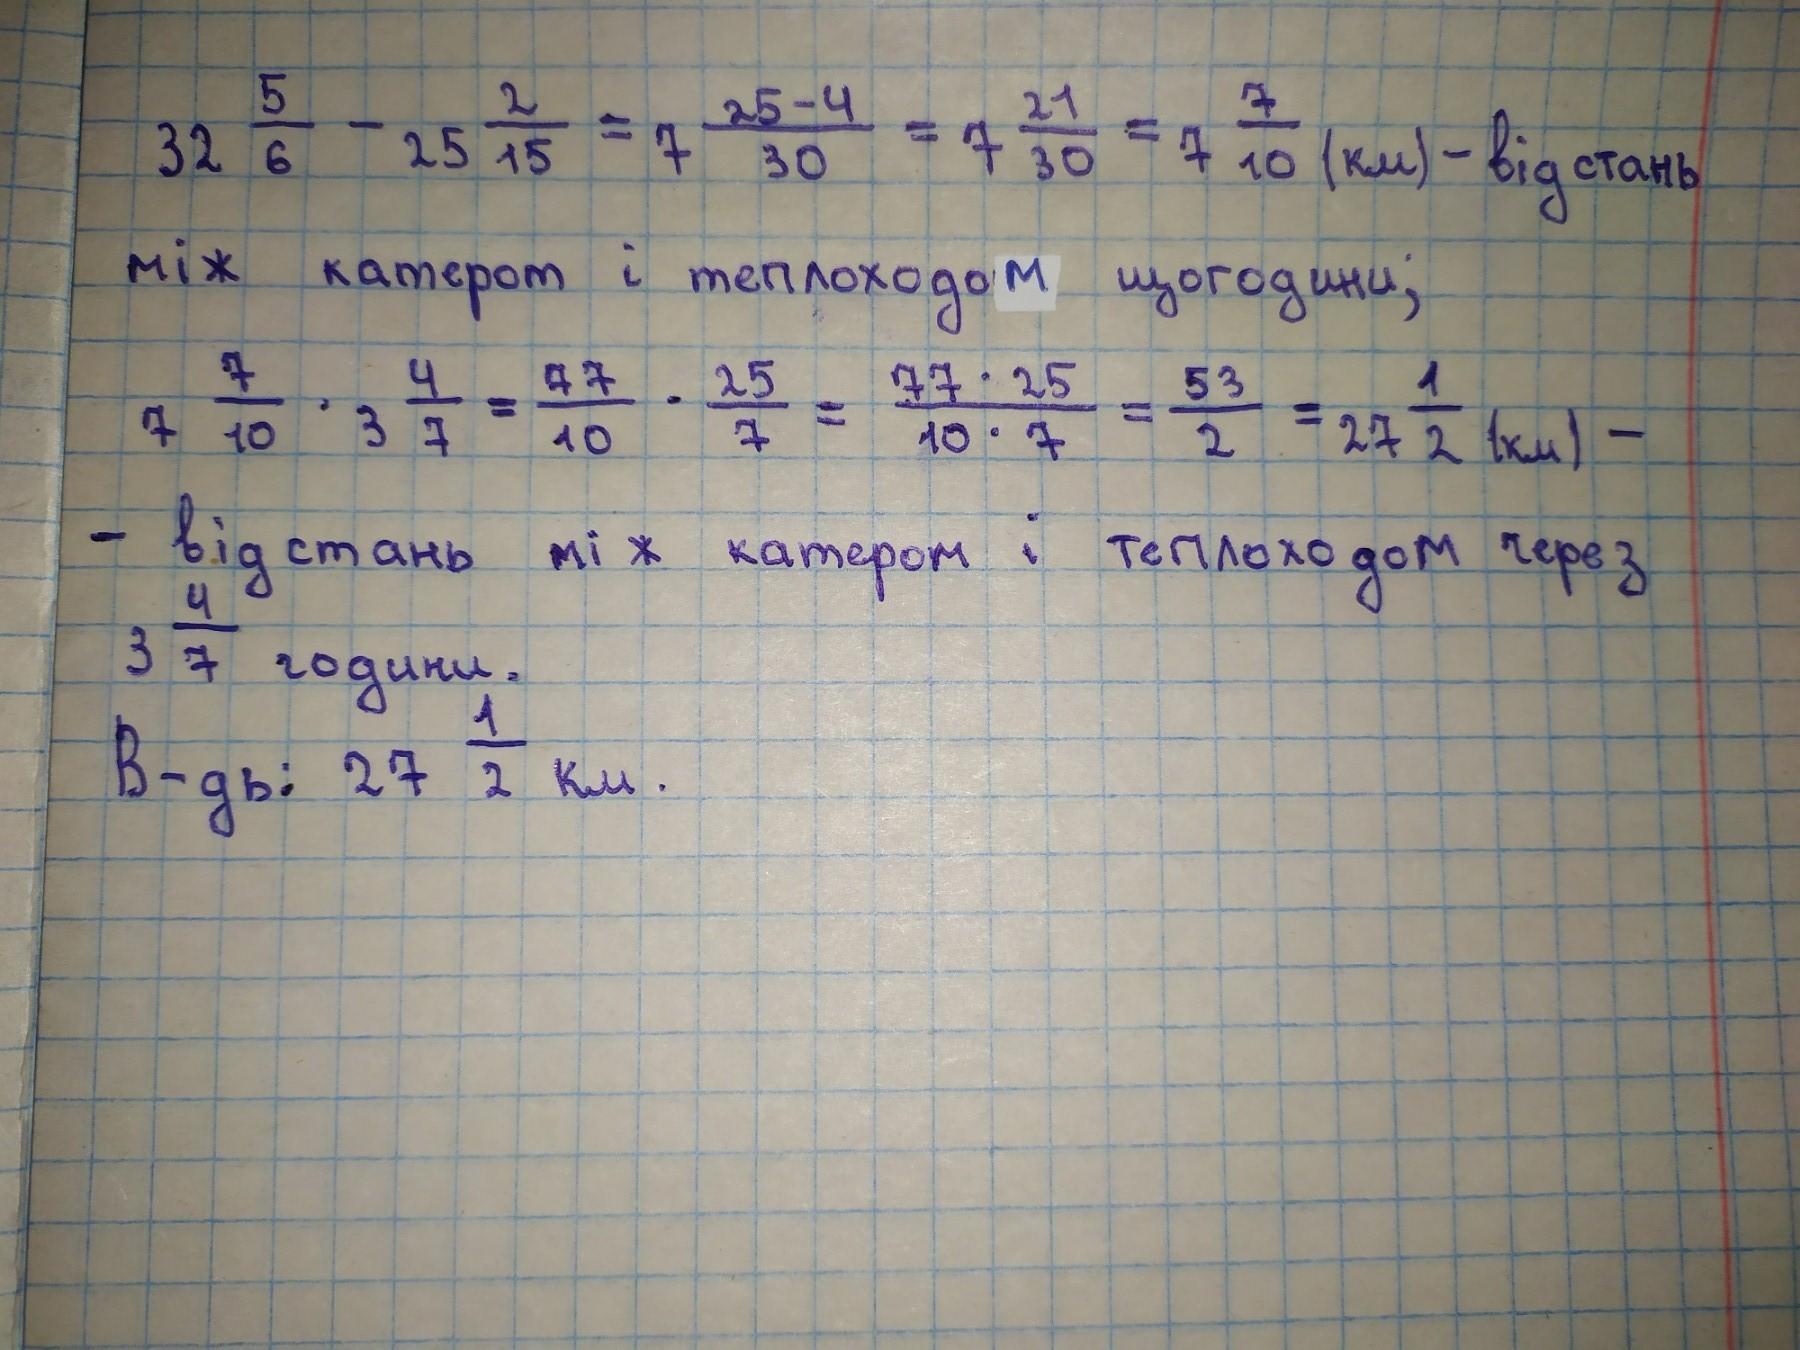 32 5/6 - 25 2/15 = 7 25-4/30 = 7 21/30 = 7 7/10 (км) - відстань
між катером і теплоходом щогодини;
7 7/10 · 3 4/7 = 77/10 · 25/7 = 77·25/10·7 = 53/2 = 27 1/2 (км) -
- відстань між катером і теплоходом через
3 4/7 години.
В-дь: 27 1/2 км.